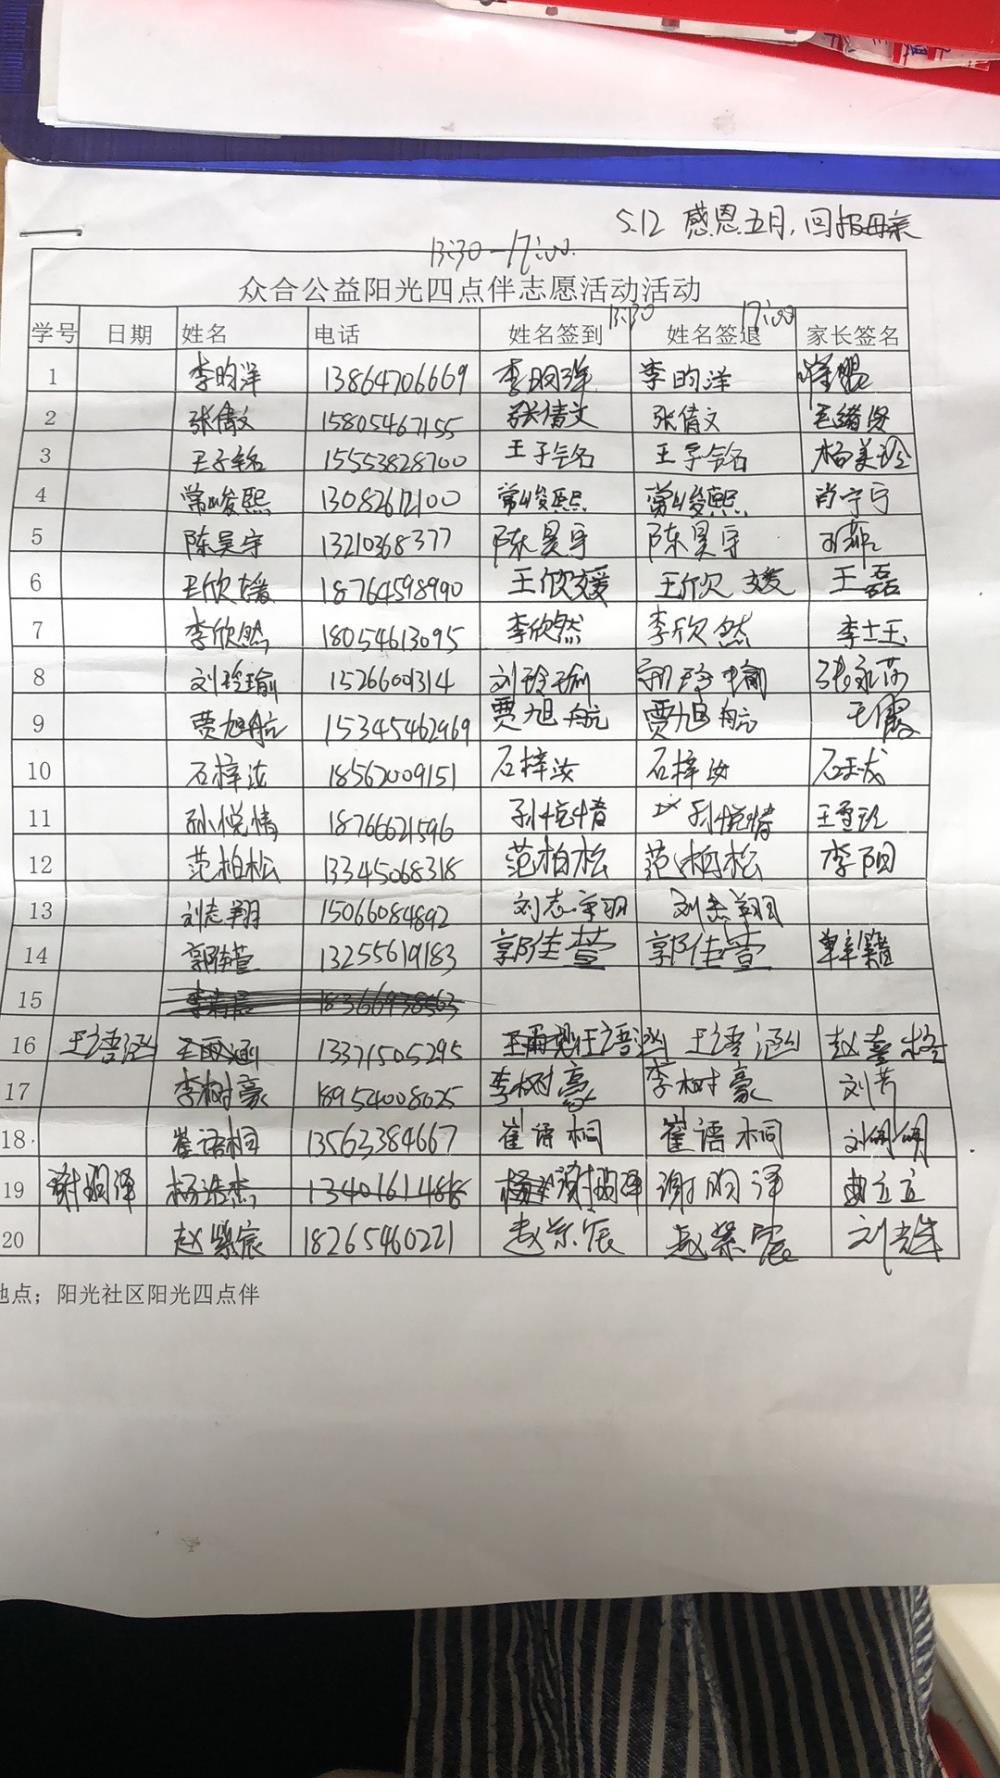 5.12 感恩五月，回报母亲
13:30-17:00
众合公益阳光四点伴志愿活动活动
13:30 17:00
学号 日期 姓名 电话 姓名签到 姓名签退 家长签名
1 李昀洋 13864706669 李昀洋 李昀洋
2 张倩文 15805467155 张倩文 张倩文
3 王子铭 15553828700 王子铭 王子铭 杨美玲
4 常峻熙 13082612100 常峻熙 常峻熙 肖宁宁
5 陈昊宇 13210368377 陈昊宇 陈昊宇
6 王欣媛 18764598990 王欣媛 王欣媛 王磊
7 李欣然 18054613095 李欣然 李欣然 李士玉
8 刘玲瑜 15266001314 刘玲瑜 刘玲瑜 张永莎
9 贾旭航 15345462969 贾旭航 贾旭航 王霞
10 石梓汝 18562009151 石梓汝 石梓汝 石玉成
11 孙悦情 18766621596 孙悦情 孙悦情
12 范柏松 13345068318 范柏松 范柏松 李阳
13 刘志翔 15066084892 刘志翔 刘志翔
14 郭佳萱 13255619183 郭佳萱 郭佳萱
15 18366938563
16 王语涵 王雨涵 13371505295 王语涵 王语涵
17 李树豪 18954008025 李树豪 李树豪 刘芳
18 崔语桐 13562384667 崔语桐 崔语桐 刘倩倩
19 谢昀泽 杨浩杰 13401614818 谢昀泽 谢昀泽 曲立立
20 赵紫宸 18265460221 赵紫宸 赵紫宸 刘锋
地点；阳光社区阳光四点伴